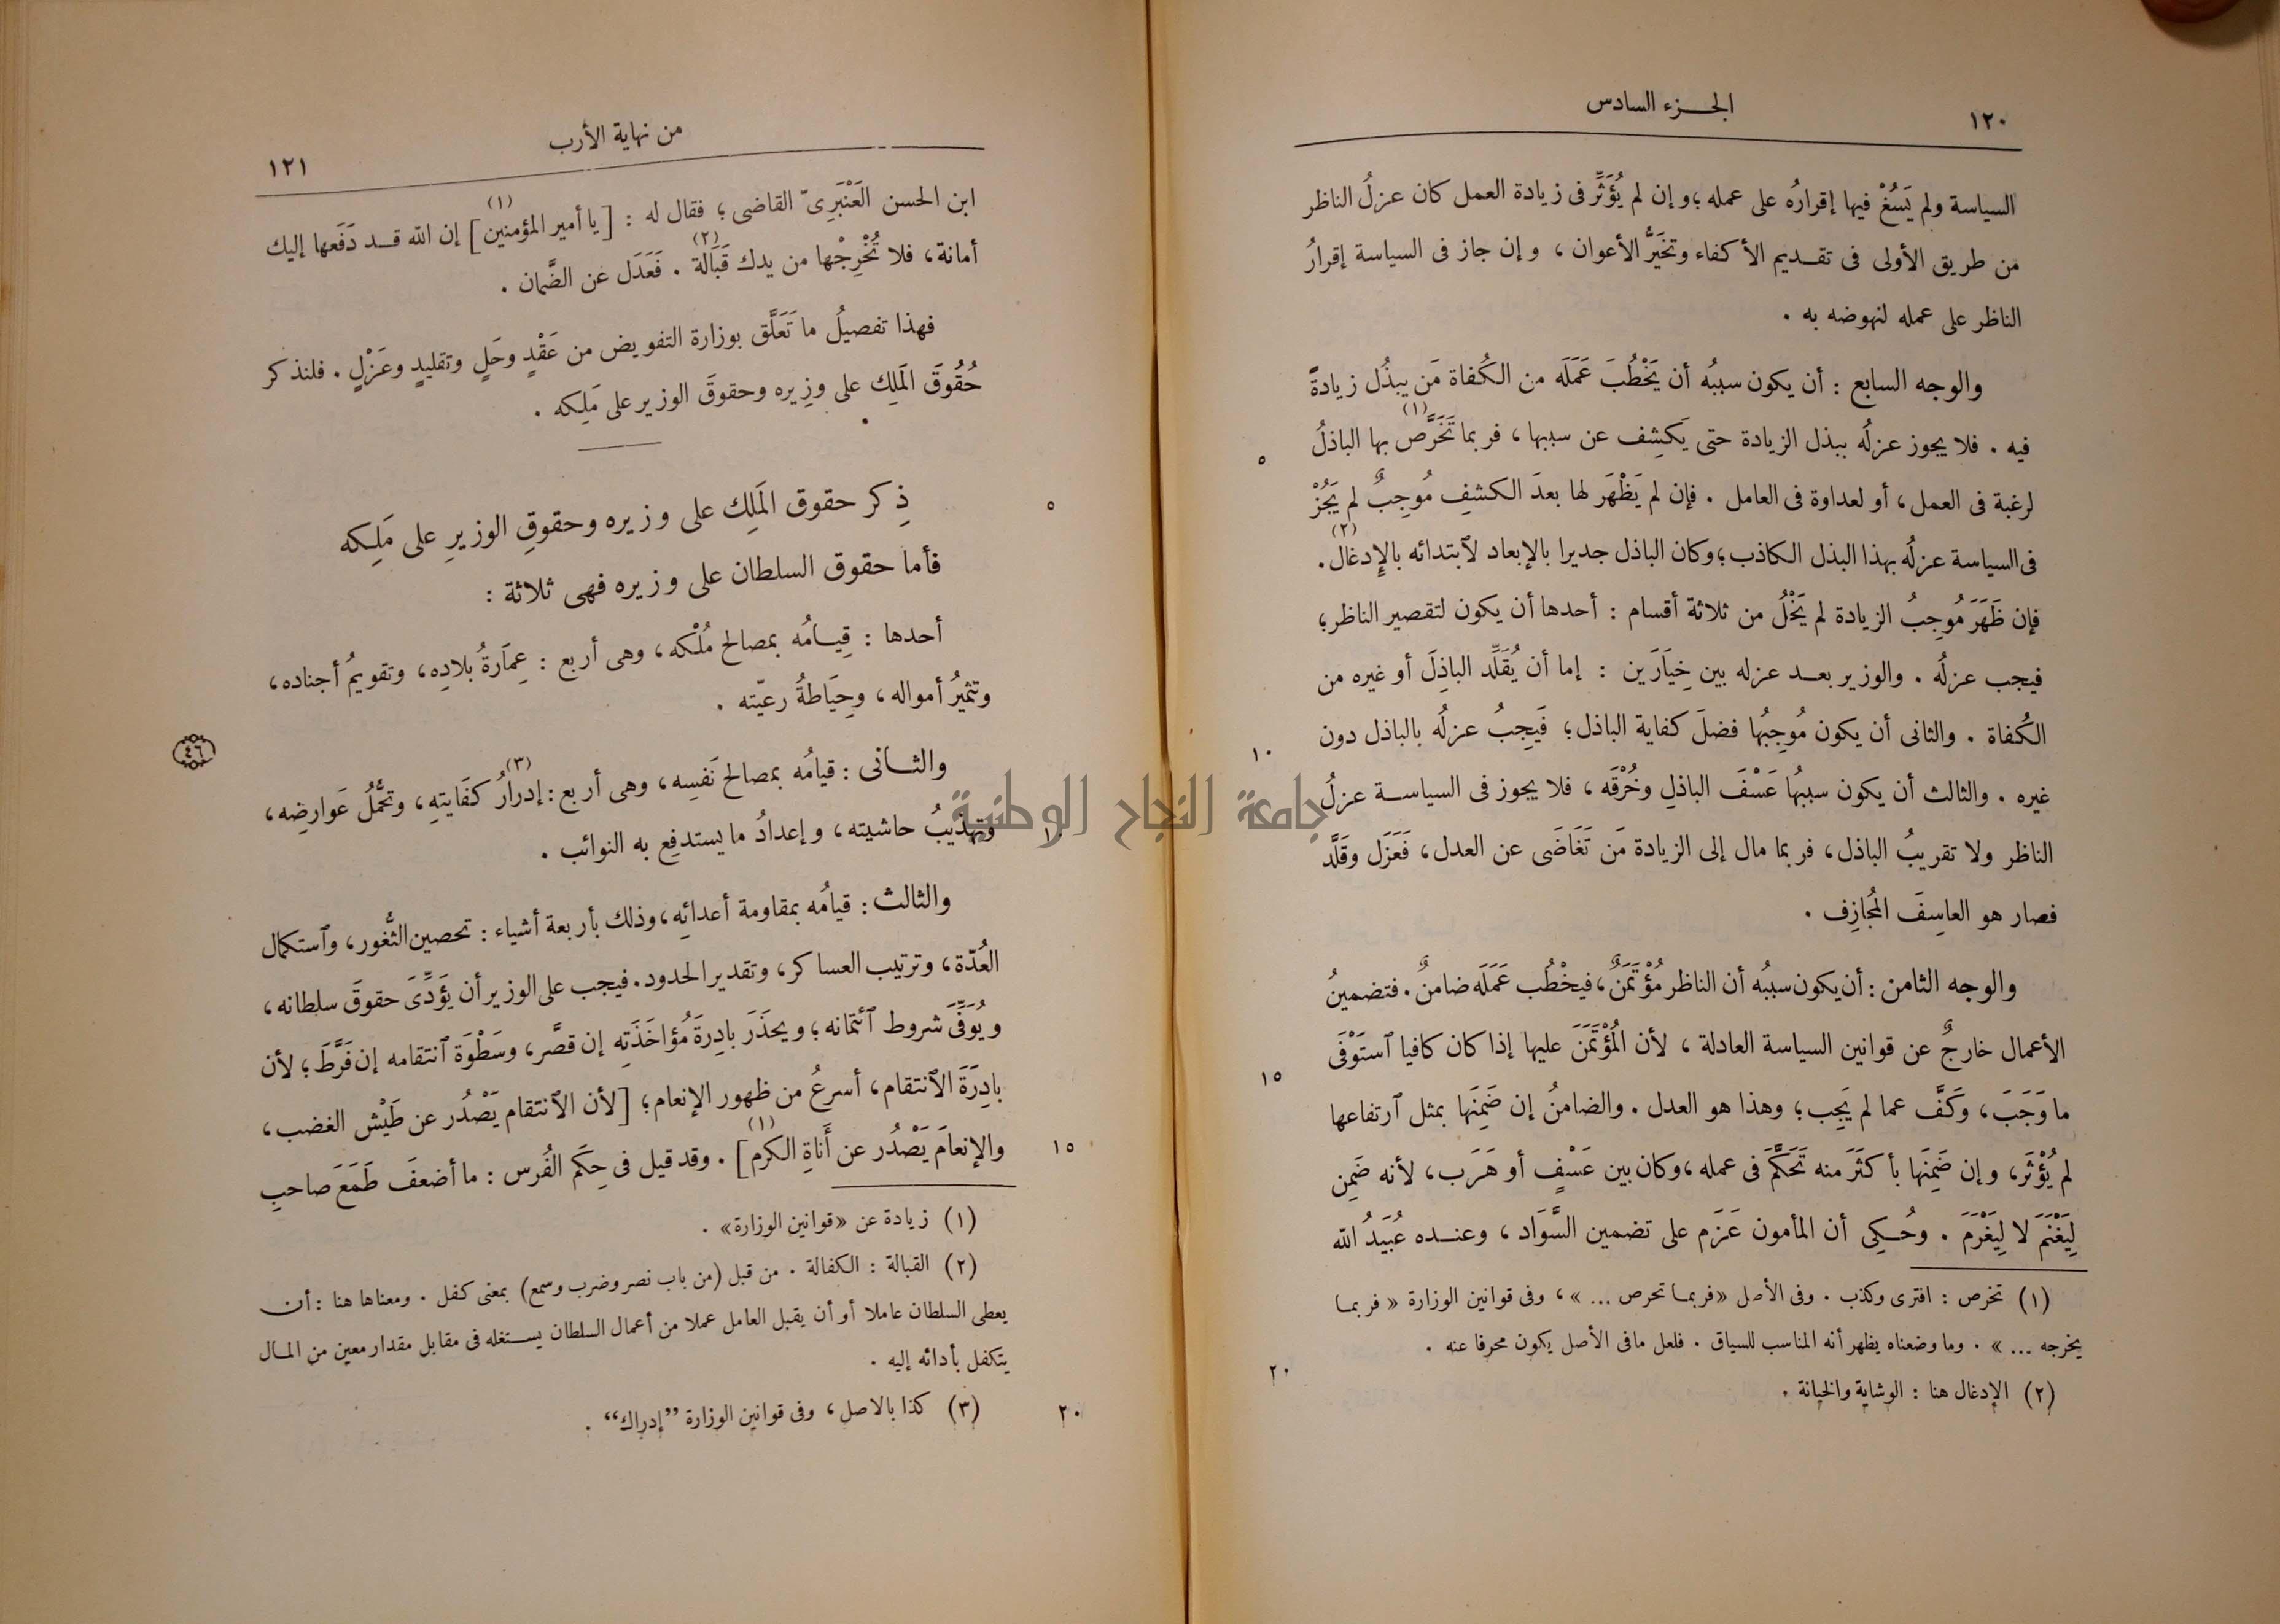 ١٢٠
الجزء السادس
السياسة ولم يَسُغْ فيها إقرارُه على عمله؛ وإن لم يُؤَثِّر فى زيادة العمل كان عزلُ الناظر
من طريق الأولى فى تقديم الأكفاء وتخيُّر الأعوان، وإن جاز فى السياسة إقرارُ
الناظر على عمله لنهوضه به .
والوجه السابع : أن يكون سببُه أن يَخْطُبَ عَمَلَه من الكُفاة مَن يبذُل زيادةً
فيه . فلا يجوز عزلُه ببذل الزيادة حتى يَكشِف عن سببها، فربما تَخَرَّص(١) بها الباذلُ
٥
لرغبة فى العمل، أو لعداوة فى العامل . فإن لم يَظْهَر لها بعدَ الكشفِ مُوجِبٌ لم يَجُزْ
فى السياسة عزلُه بهذا البذل الكاذب؛ وكان الباذل جديرا بالإبعاد لاّبتدائه بالإدغال(٢) .
فإن ظَهَرَ مُوجِبُ الزيادة لم يَخْلُ من ثلاثة أقسام : أحدها أن يكون لتقصير الناظر؛
فيجب عزلُه . والوزير بعد عزله بين خِيَارَين : إما أن يُقَلِّد الباذِلَ أو غيره من
الكُفاة . والثانى أن يكون مُوجِبُها فضلَ كفاية الباذل؛ فَيَجِبُ عزلُه بالباذل دون
١٠
غيره . والثالث أن يكون سببُها عَسْفَ الباذلِ وخُرْقَه، فلا يجوز فى السياسة عزلُ
الناظر ولا تقريبُ الباذل، فربما مال إلى الزيادة مَن تَغَاضَى عن العدل، فَعَزَل وقَلَّد
فصار هو العاسِفَ المُجازِف .
والوجه الثامن : أن يكون سببُه أن الناظر مُؤْتَمَنٌ، فيخْطُب عَمَلَه ضامنٌ . فتضمينُ
الأعمال خارجٌ عن قوانين السياسة العادلة، لأن المُؤْتَمَنَ عليها إذا كان كافيا ٱستَوْفَى
١٥
ما وَجَبَ، وكَفَّ عما لم يَجِب؛ وهذا هو العدل . والضامنُ إن ضَمِنَها بمثل ٱرتفاعها
لم يُؤْثَر، وإن ضَمِنَها بأكثَرَ منه تَحَكَّمَ فى عمله، وكان بين عَسْفٍ أو هَرَب، لأنه ضَمِن
لِيَغْنَمَ لا لِيَغْرَمَ . وحُكِى أن المأمون عَزَم على تضمين السَّوَاد، وعنده عُبَيدُ الله
(١) تخرص : افترى وكذب . وفى الأصل «فربما تحرص ...»، وفى قوانين الوزارة «فربما
يخرجه ...» . وما وضعناه يظهر أنه المناسب للسياق . فلعل مافى الأصل يكون محرفا عنه .
٢٠
(٢) الإدغال هنا : الوشاية والخيانة .
من نهاية الأرب
١٢١
ابن الحسن العَنْبَرِىّ القاضى؛ فقال له : [يا أمير المؤمنين](١) إن الله قد دَفَعها إليك
أمانة، فلا تُخْرِجْها من يدك قَبَالة(٢) . فَعَدَل عن الضَّمان .
فهذا تفصيلُ ما تَعَلَّق بوزارة التفويض من عَقْدٍ وحَلٍ وتقليدٍ وعَزْلٍ . فلنذكر
حُقُوقَ المَلِك على وزِيره وحقوقَ الوزير على مَلِكه .
ذِكر حقوق المَلِك على وزيره وحقوقِ الوزيرِ على مَلِكه
٥
فأما حقوق السلطان على وزيره فهى ثلاثة :
أحدها : قِيامُه بمصالح مُلْكه، وهى أربع : عِمَارَةُ بلادِه، وتقويمُ أجناده،
وتثميرُ أمواله، وحِيَاطةُ رعيّته .
٤٦
والثانى : قيامُه بمصالح نَفسِه، وهى أربع : إدرارُ(٣) كفَايتهِ، وتحمُّلُ عَوارضِه،
وتهذيبُ حاشيته، وإعدادُ ما يستدفِع به النوائب .
١٠
جامعة النجاح الوطنية
والثالث : قيامُه بمقاومة أعدائِه، وذلك بأربعة أشياء : تحصين الثُّغور، وٱستكمال
العُدّة، وترتيب العساكر، وتقدير الحدود . فيجب على الوزير أن يؤدِّىَ حقوقَ سلطانه،
ويُوَفِّىَ شروط ٱئتمانه؛ ويحذَرَ بادِرةَ مُؤاخَذَتِه إن قصَّر، وسَطْوَة ٱنتقامه إن فَرَّطَ؛ لأن
بادِرَةَ الٱنتقام، أسرعُ من ظهور الإنعام؛ [لأن الٱنتقام يَصْدُر عن طَيْش الغضب،
والإنعامَ يَصْدُر عن أَناةِ الكرم](١) . وقد قيل فى حِكَم الفُرس : ما أضعفَ طَمَعَ صاحبِ
١٥
(١) زيادة عن «قوانين الوزارة» .
(٢) القبالة : الكفالة . من قبل (من باب نصر وضرب وسمع) بمعنى كفل . ومعناها هنا : أن
يعطى السلطان عاملا أو أن يقبل العامل عملا من أعمال السلطان يستغله فى مقابل مقدار معين من المال
يتكفل بأدائه إليه .
(٣) كذا بالاصل، وفى قوانين الوزارة ”إدراك“ .
٢٠